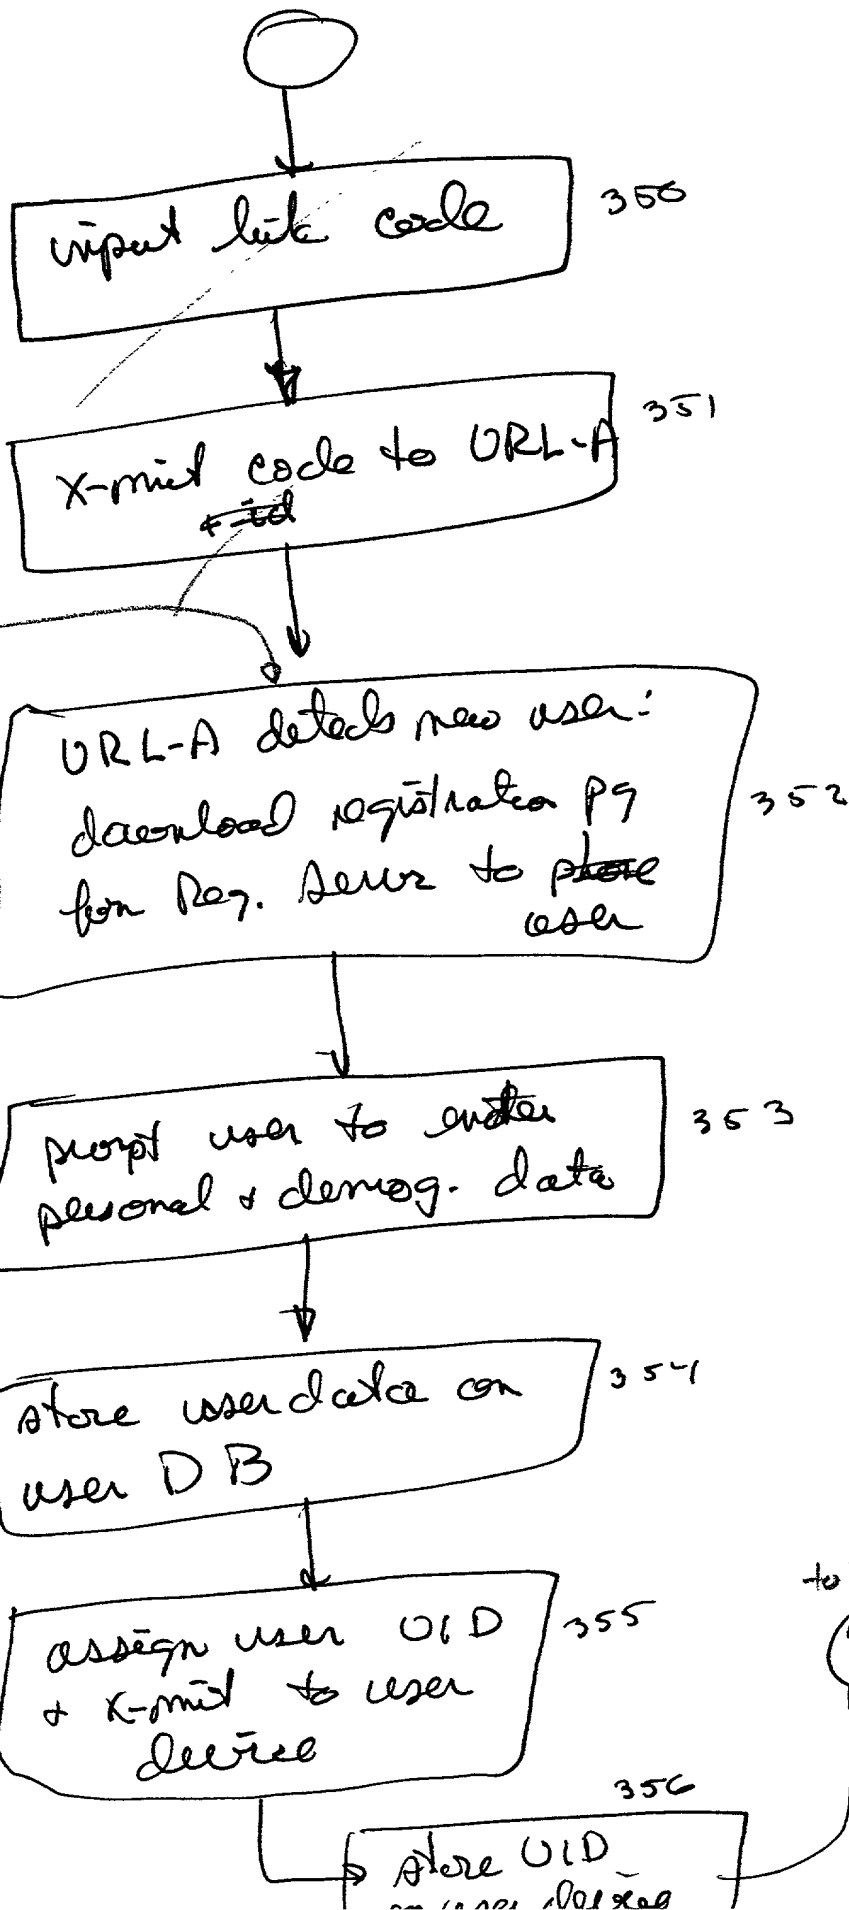 input link code
350
351
X-mit code to URL-A
+ id
URL-A detects new user:
download registration pg
352
from Reg. Server to phone
user
353
prompt user to enter
personal + demog. data
354
store user data on
user DB
to
assign user UID
355
+ x-mit to user
device
356
store UID
on user device